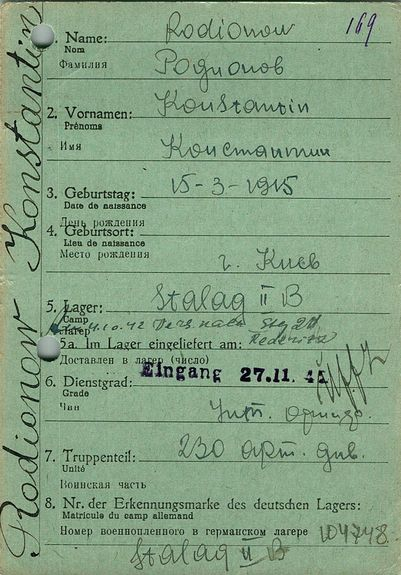 Rodionow Konstantin
169
1. Name: Rodionow
Nom
Фамилия Родионов
2. Vornamen: Konstantin
Prénoms
Имя Константин
3. Geburtstag: 15-3-1915
Date de naissance
День рождения
4. Geburtsort:
Lieu de naissance
Место рождения г. Киев
5. Lager: Stalag II B
Camp
Лагерь
4.10.42 Vers. nach
5a. Im Lager eingeliefert am:
Доставлен в лагерь (число)
Eingang 27.11.
6. Dienstgrad:
Grade
Чин
7. Truppenteil: 230 арт. див.
Unité
Воинская часть
8. Nr. der Erkennungsmarke des deutschen Lagers:
Matricule du camp allemand
Номер военнопленного в германском лагере 104748
Stalag II B